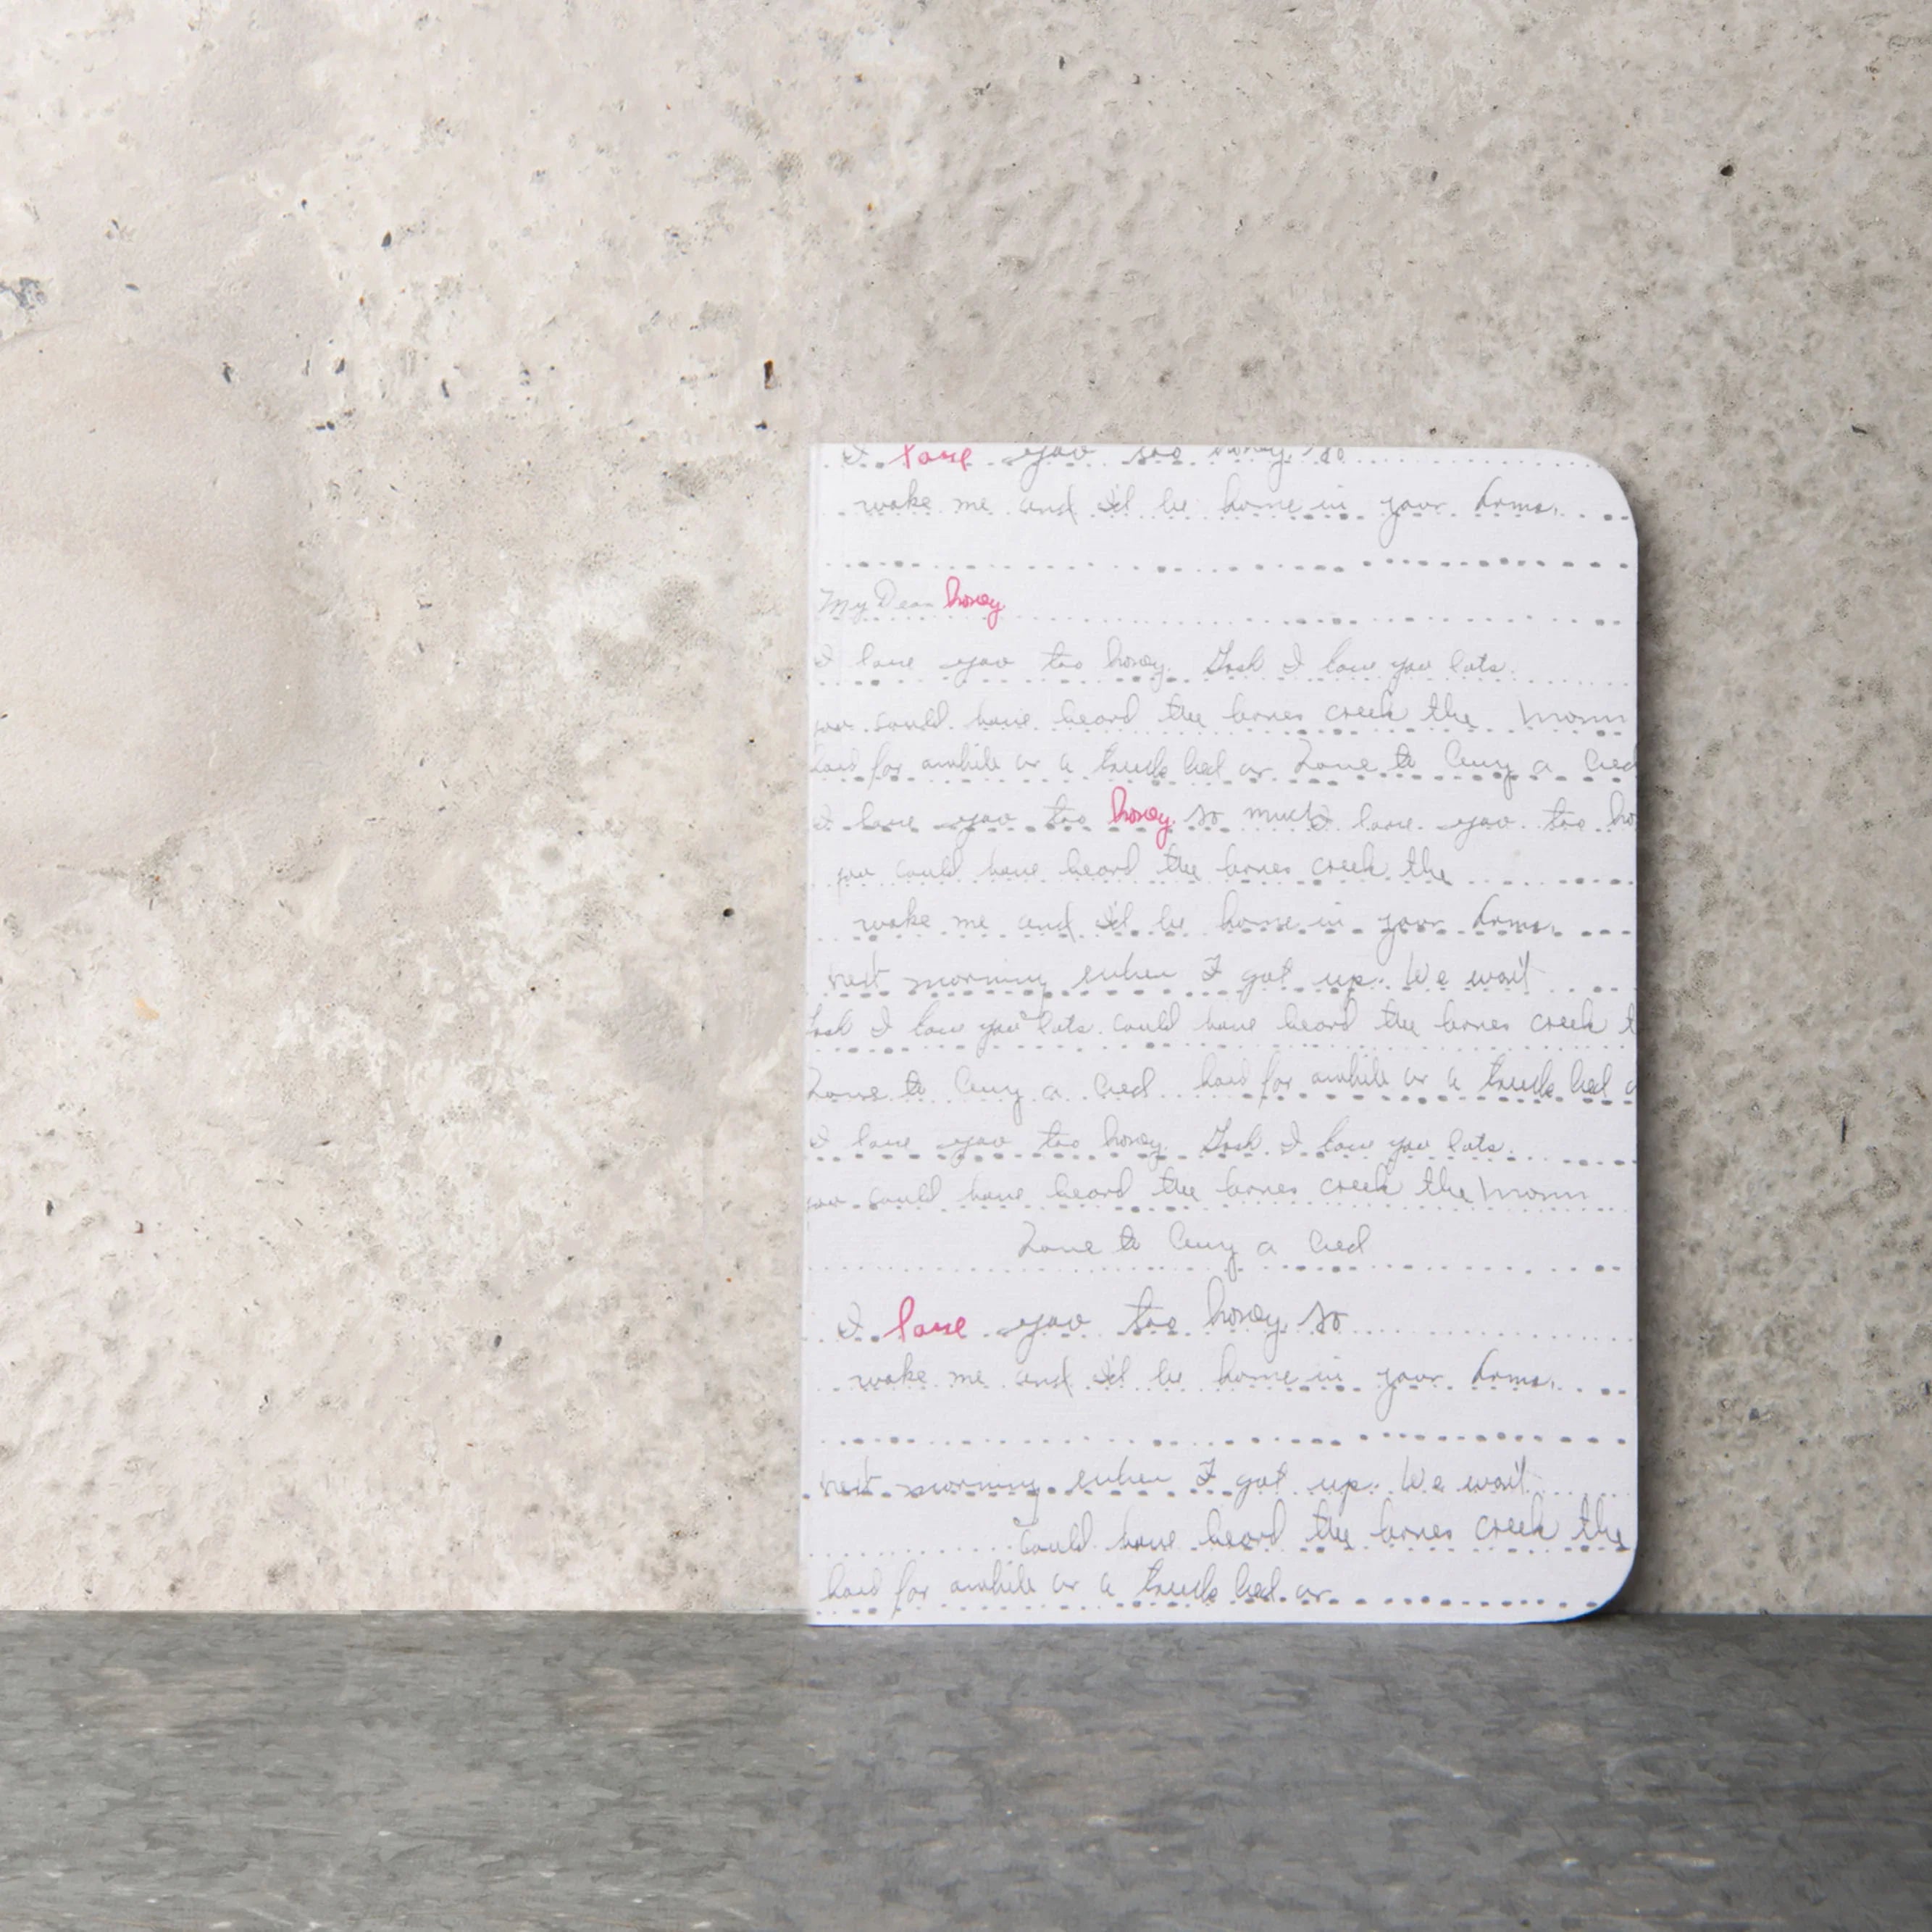 I love you too honey, so
wake me and I'd be home in your arms.
My Dear honey
I love you too honey. Gosh I love you lots.
you could have heard the bones creek the morn
hard for awhile or a truck bed or Have to buy a bed
I love you too honey, so much I love you too ho
you could have heard the bones creek the
wake me and I'd be home in your arms.
next morning when I got up. We wait
Gosh I love you lots. could have heard the bones creek t
Have to buy a bed hard for awhile or a truck bed o
I love you too honey. Gosh I love you lots.
you could have heard the bones creek the morn
Have to buy a bed
I love you too honey, so
wake me and I'd be home in your arms.
next morning when I got up. We wait
could have heard the bones creek the
hard for awhile or a truck bed or